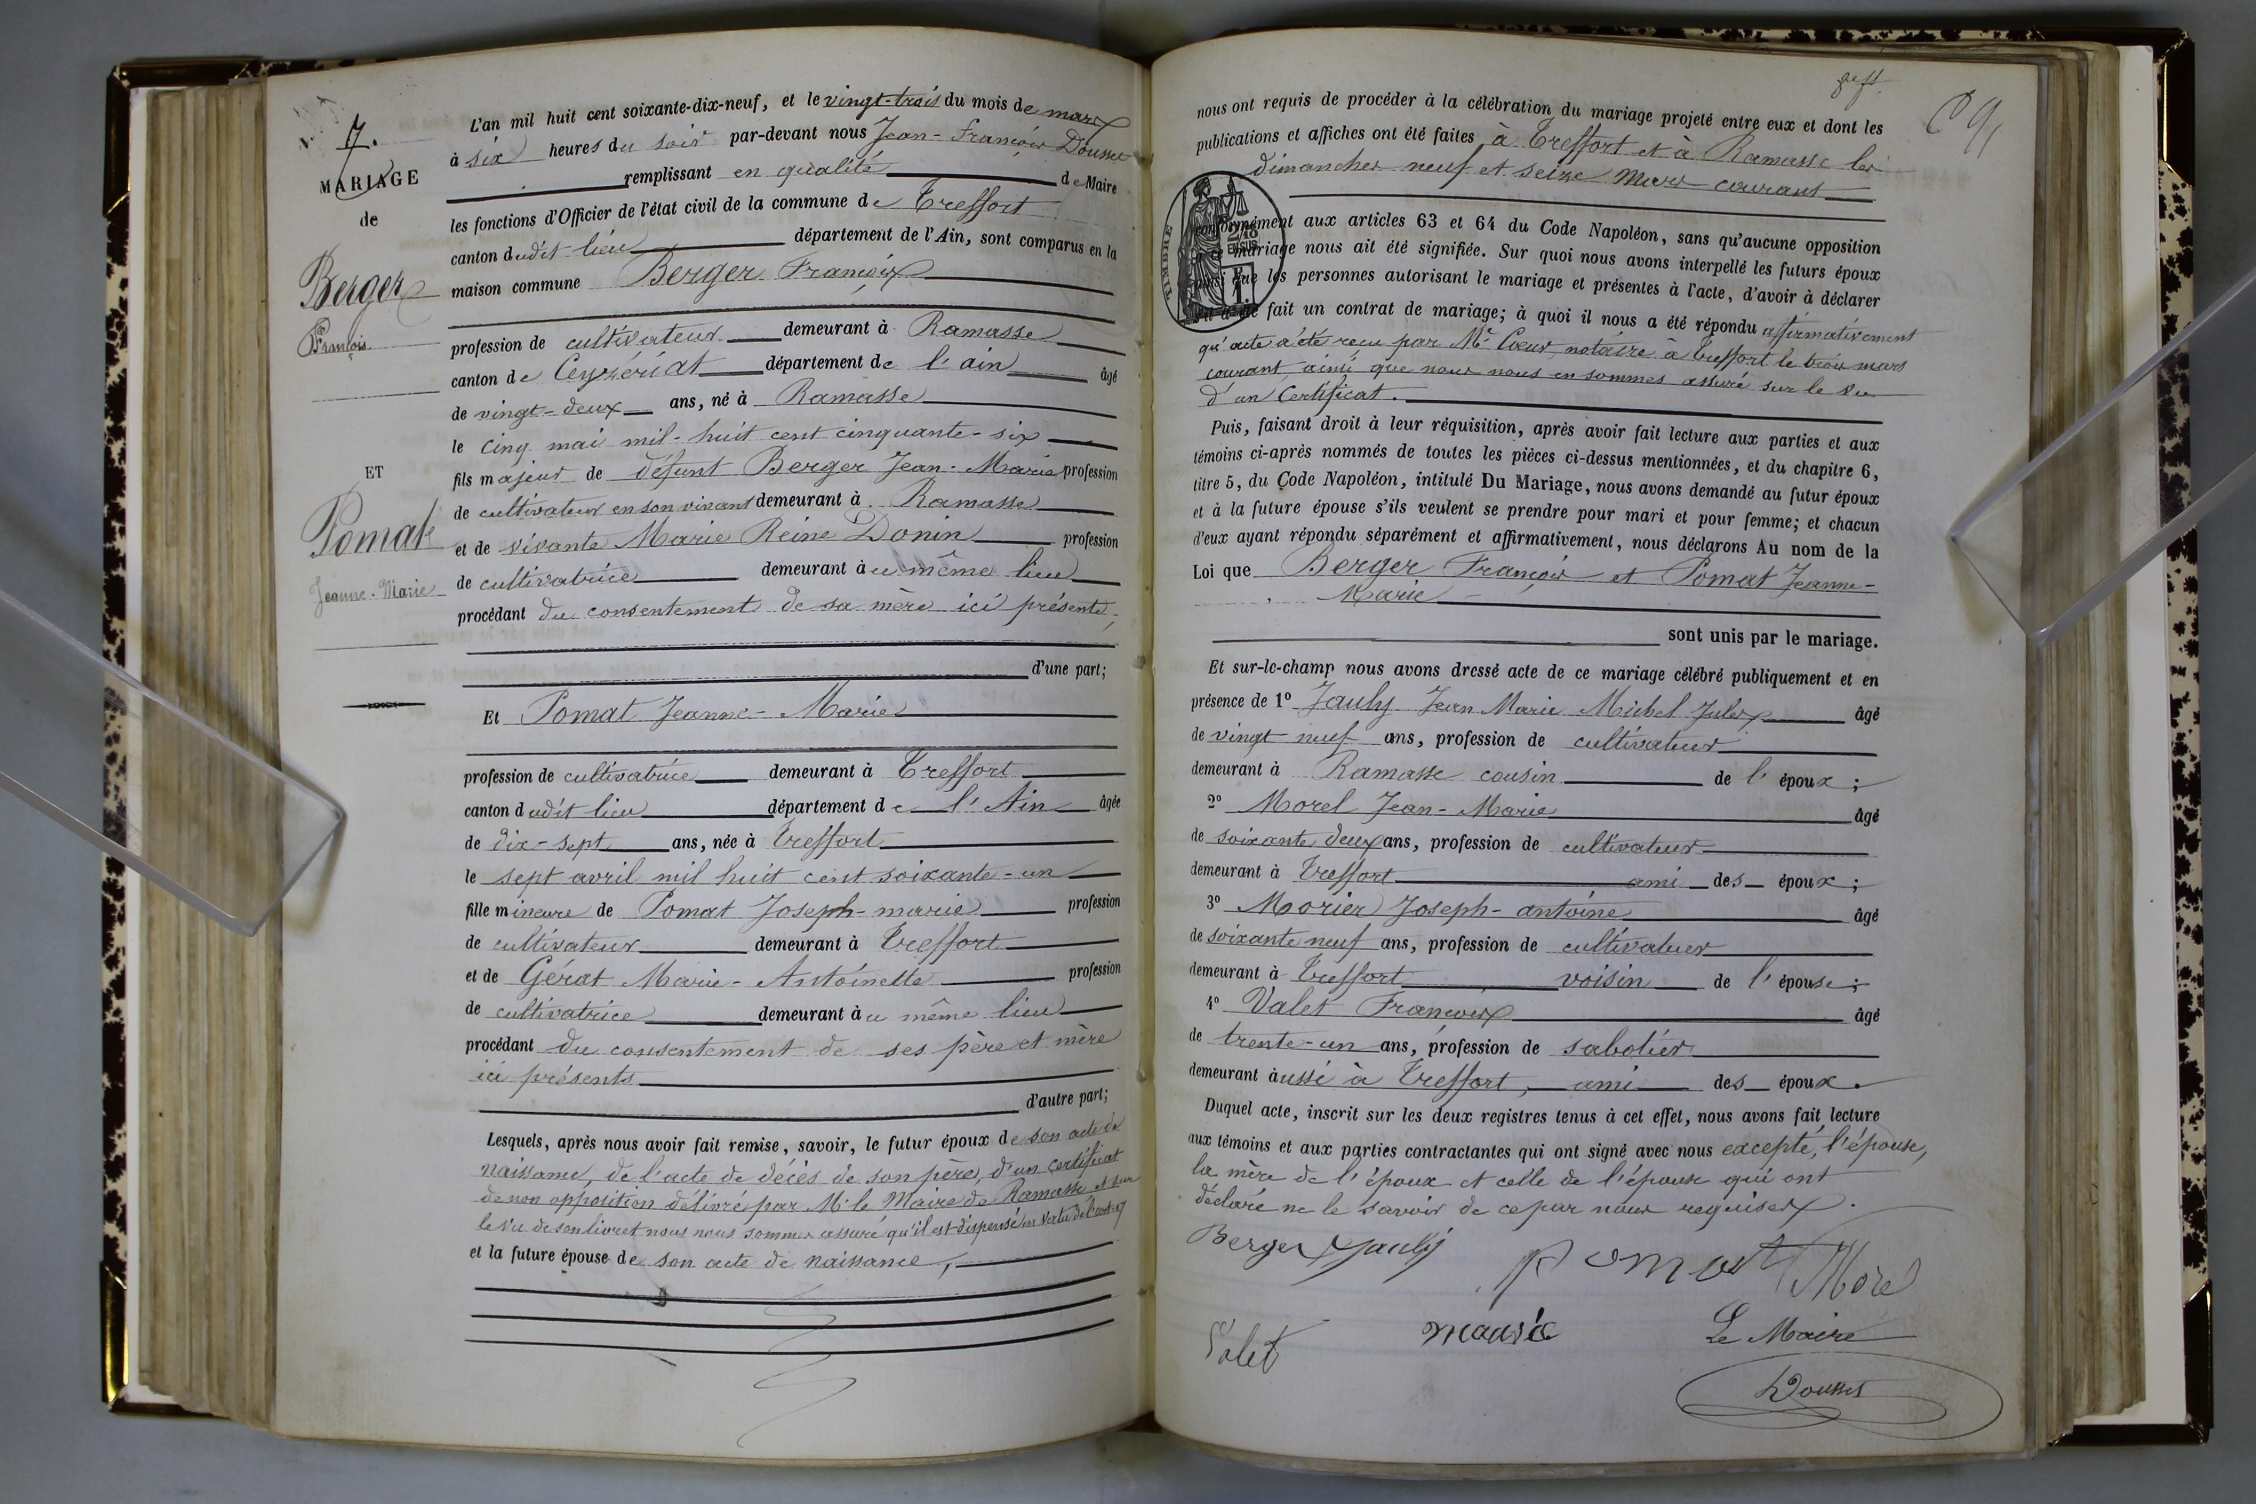 7.
MARIAGE
de
Berger
François
ET
Pomat
Jeanne-Marie
L'an mil huit cent soixante-dix-neuf, et le vingt-trois du mois de mars
à six heures du soir par-devant nous Jean-François Dousset
remplissant en qualité de Maire
les fonctions d'Officier de l'état civil de la commune de Treffort
canton dudit lieu département de l'Ain, sont comparus en la
maison commune Berger François
profession de cultivateur demeurant à Ramasse
canton de Ceyzériat département de l'ain âgé
de vingt-deux ans, né à Ramasse
le cinq mai mil-huit cent cinquante-six
fils majeur de défunt Berger Jean-Marie profession
de cultivateur en son vivant demeurant à Ramasse
et de vivante Marie Reine Donin profession
de cultivatrice demeurant à u même lieu
procédant du consentement de sa mère ici présente,
d'une part;
Et Pomat Jeanne-Marie
profession de cultivatrice demeurant à Treffort
canton dudit lieu département de l'Ain âgée
de dix-sept ans, née à Treffort
le sept avril mil huit cent soixante-un
fille mineure de Pomat Joseph-marie profession
de cultivateur demeurant à Treffort
et de Gérat Marie-Antoinette profession
de cultivatrice demeurant à u même lieu
procédant du consentement de ses père et mère
ici présents
d'autre part;
Lesquels, après nous avoir fait remise, savoir, le futur époux de son acte de
naissance, de l'acte de décès de son père, d'un certificat
de non opposition délivré par Mr le Maire de Ramasse et sur
le vu de son livret nous nous sommes assuré qu'il est dispensé en vertu de l'art. 17
et la future épouse de son acte de naissance,
nous ont requis de procéder à la célébration du mariage projeté entre eux et dont les
publications et affiches ont été faites à Treffort et à Ramasse les
dimanches neuf et seize mars courant
conformément aux articles 63 et 64 du Code Napoléon, sans qu'aucune opposition
ce mariage nous ait été signifiée. Sur quoi nous avons interpellé les futurs époux
ainsi que les personnes autorisant le mariage et présentes à l'acte, d'avoir à déclarer
s'il a été fait un contrat de mariage; à quoi il nous a été répondu affirmativement
qu'acte a été reçu par Me Cœur, notaire à Treffort le trois mars
courant, ainsi que nous nous en sommes assuré sur le vu
d'un Certificat.
TIMBRE
Puis, faisant droit à leur réquisition, après avoir fait lecture aux parties et aux
témoins ci-après nommés de toutes les pièces ci-dessus mentionnées, et du chapitre 6,
titre 5, du Code Napoléon, intitulé Du Mariage, nous avons demandé au futur époux
et à la future épouse s'ils veulent se prendre pour mari et pour femme; et chacun
d'eux ayant répondu séparément et affirmativement, nous déclarons Au nom de la
Loi que Berger François et Pomat Jeanne-
Marie
sont unis par le mariage.
Et sur-le-champ nous avons dressé acte de ce mariage célébré publiquement et en
présence de 1° Jauly Jean Marie Michel Jules âgé
de vingt neuf ans, profession de cultivateur
demeurant à Ramasse cousin de l'époux;
2° Morel Jean-Marie âgé
de soixante deux ans, profession de cultivateur
demeurant à Treffort ami des époux;
3° Morier Joseph-antoine âgé
de soixante neuf ans, profession de cultivateur
demeurant à Treffort voisin de l'épouse;
4° Valet François âgé
de trente-un ans, profession de sabotier
demeurant àussi à Treffort, ami des époux.
Duquel acte, inscrit sur les deux registres tenus à cet effet, nous avons fait lecture
aux témoins et aux parties contractantes qui ont signé avec nous excepté, l'épouse,
la mère de l'époux et celle de l'épouse qui ont
déclaré ne le savoir de ce par nous requises.
Berger Jauly Pomat Morel
Valet Le Maire
Dousset